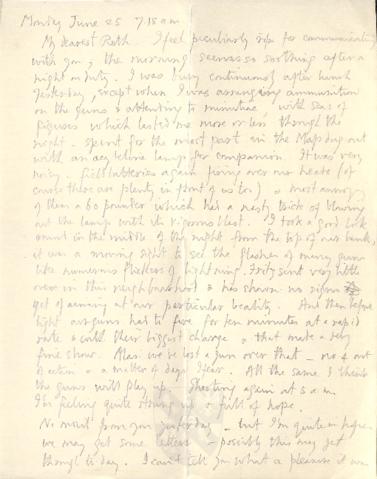 Monday June 25 7.15 a.m.
My dearest Ruth. I feel peculiarly ripe for communication
with you; the morning seems so soothing after a
night on duty. I was busy continuously after lunch
yesterday, except when I was arranging ammunition
on the guns & attending to minutiae, with seas of
figures which lasted me more or less through the
night - spent for the most part in the Map dug out
with an acetylene lamp for companion. It was very
noisy. Field batteries again firing over our heads (of
course there are plenty in front of us too) & most annoying
of them a 60 pounder which has a nasty trick of blowing
out the lamp with its vigorous blast. I took a good look
round in the middle of the night from the top of our bank,
it was a moving sight to see the flashes of many guns
like numerous flickers of lightning. Fritz sent very little
over in this neighbourhood & has shown no signs
yet of aiming at our particular locality. And then before
light our guns had to fire for ten minutes at a rapid
rate & with their biggest charge & that made a very
fine show. Alas we've lost a gun over that - no 4 out
of action - a matter of days I fear. All the same I think
the guns will play up - Shooting again at 5 a.m.
I'm feeling quite strung up & full of hope.
No mail from you yesterday - but I'm quite in hopes
we may get some letters - possibly this may get
through to day. I can't tell you what a pleasure it was